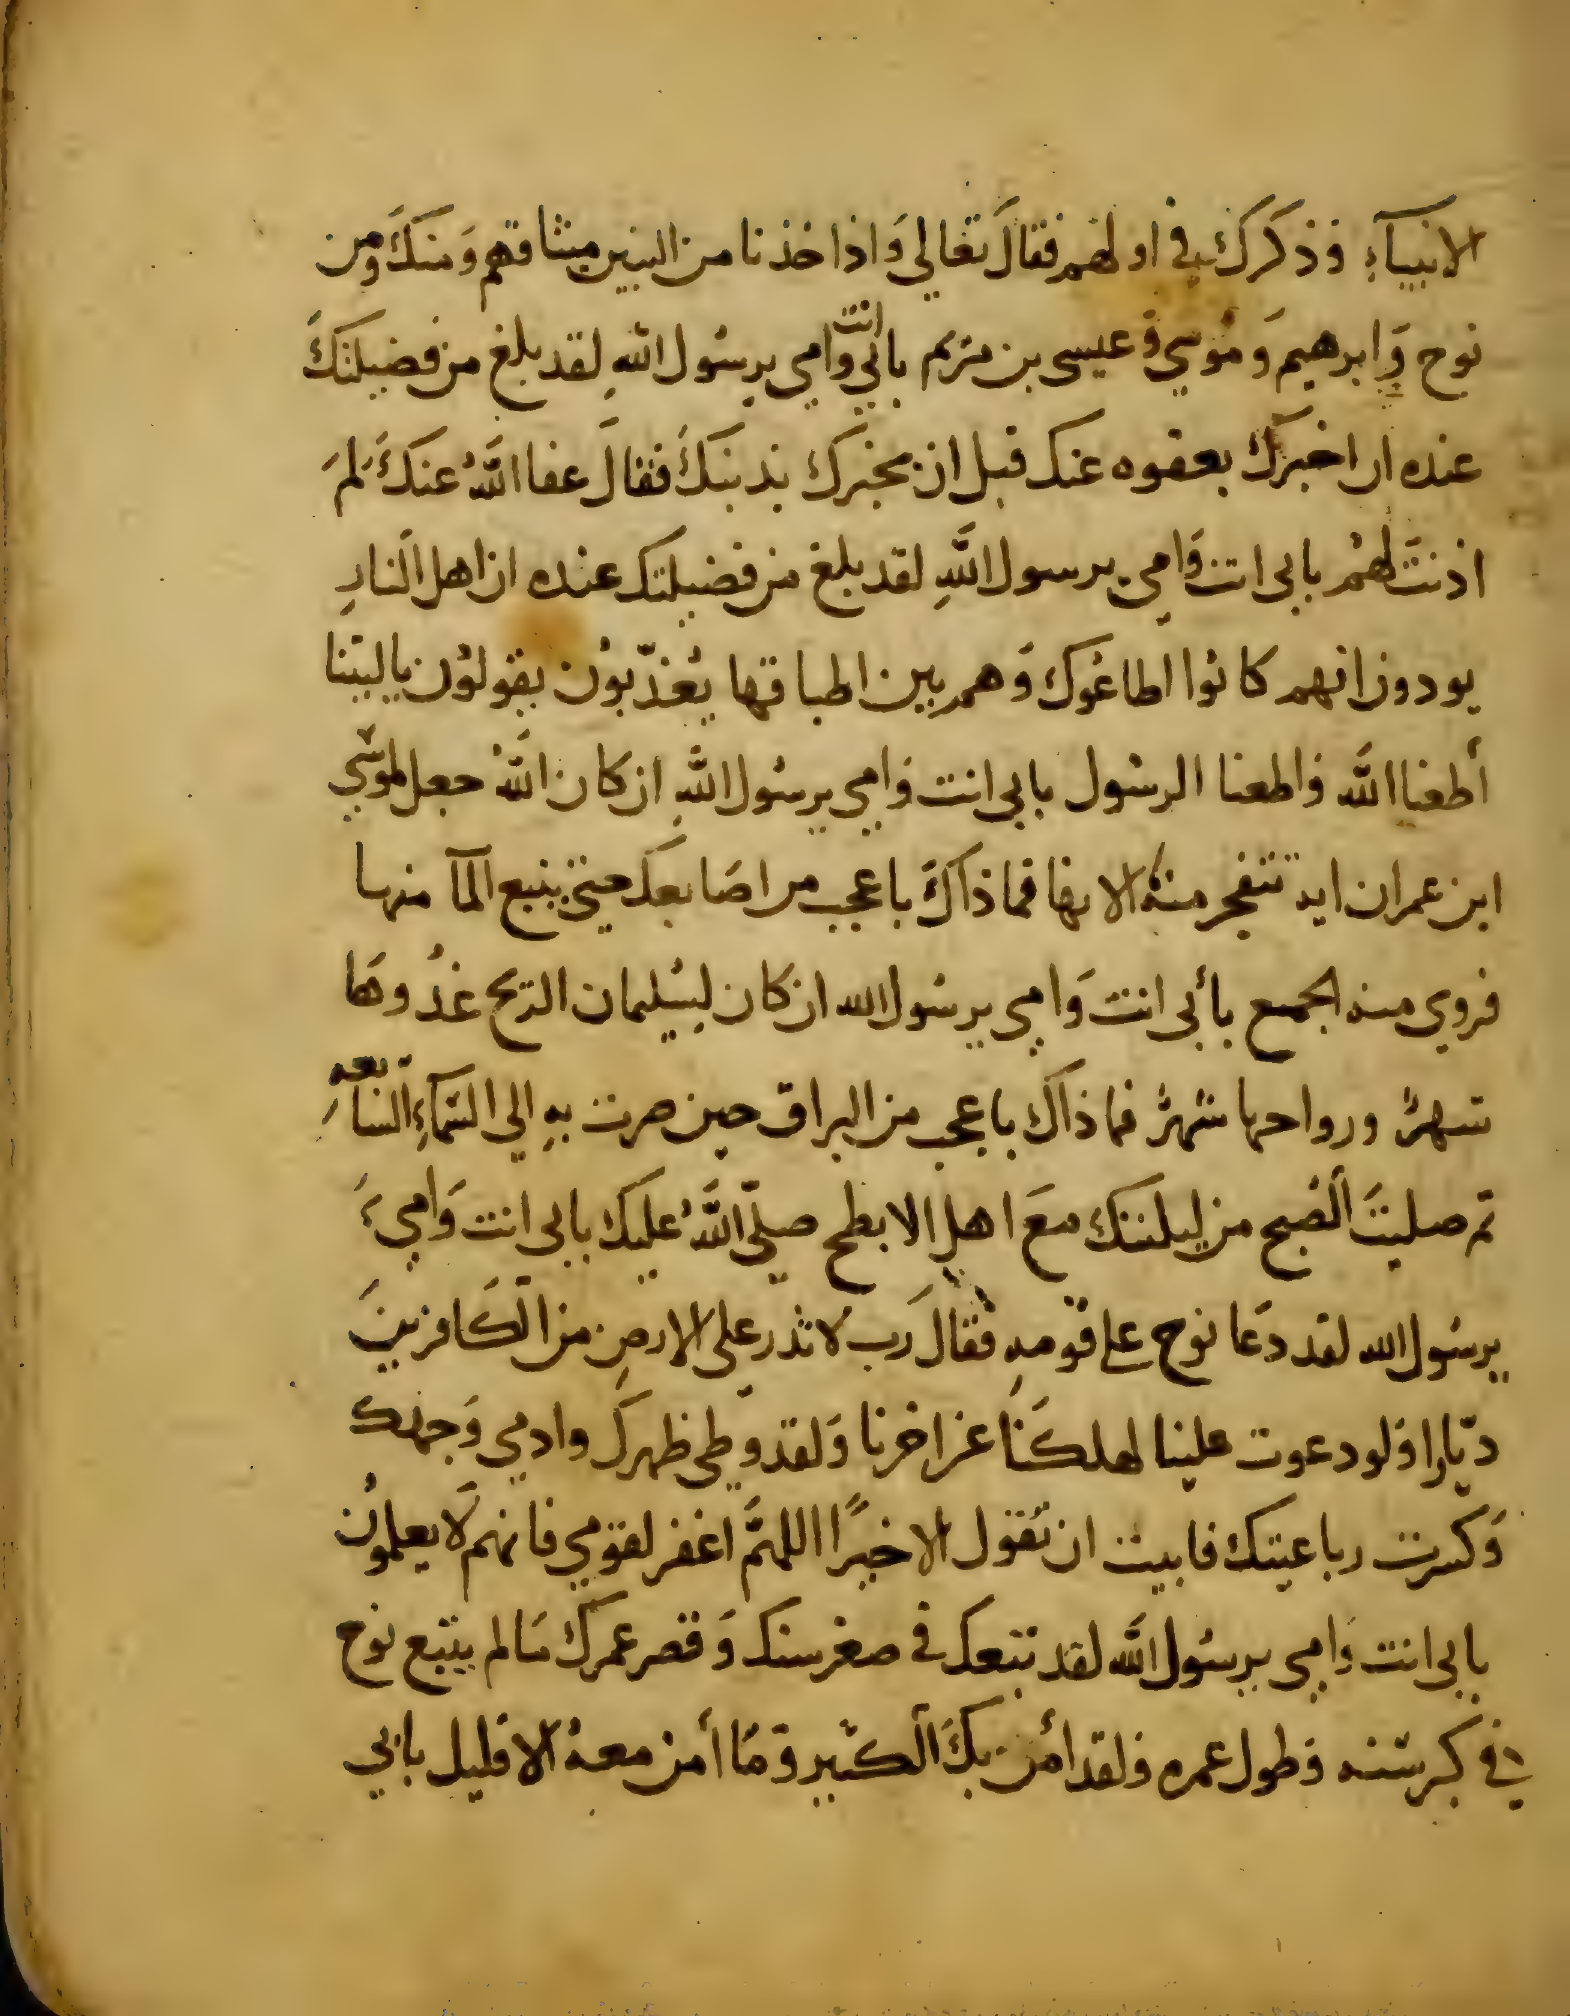 الانبيآءِ وَذكرَكَ في اولهم فقالَ تعَالي وَاذ اخذنا من النبين ميثاقهم وَمنكَ وَمن
نوح وَابرهيم وَموُسي وَ عيسى بن مرَيم بابي انت وَامي يرسُول اللهِ لقد بلغ من فضيلتكَ
عنده ان اخبرَك بعفوه عنك قبل ان يخبرك بذنبكَ فقالَ عفا اللَّهُ عنكَ لمَ
اذنتَ لهُمْ بابى انت وَامي يرسول اللَّهِ لقد بلغ من فضيلتك عنده ان اهل النارِ
يودون انهم كانوُا اطاعُوك وَهم بين اطباقها يُعذّبوُن يقولوُن ياليتنا
أطعنا اللَّه وَاطعنا الرسُول بابى انت وَامي يرسُول اللَّهِ ان كان اللَّهُ جعل لموسَي
ابن عمران ايد تتفجر منهُ الانها فماذاكَ باعجب من اصَابعك حين ينبع المآ منها
فروي منه الجميع بأبى انت وَامي يرسُول الله ان كان لسُليمان الريح غدُوهَا
شهرٌ ورواحها شهرٌ فماذاكَ باعجب من البراق حين صرت بهِ الى السَّمآءِ السَابعهِ
ثم صليتَ الصُبح من ليلتك معَ اهل الابطح صلّى اللَّهُ عليك بابى انت وَامي
يرسُول الله لقد دعَا نوح على قومهِ فقالَ رَب لا تذر على الارضِ من الكَافرينَ
ديّارا وَلو دعوت علينا لهلكنَا عن اخرنا وَلقد وطي ظهركَ وادمي وَجهك
وَكسرت رباعيتك فابيت ان تقول الا خيرًا اللهمَّ اغفر لقومي فانهم لَا يعلموُن
بابى انت وَامي يرسُول اللَّه لقد تبعك في صغر سنك وَقصر عمركَ مَا لم يتبع نوح
في كبر سّنه وَطول عمره وَلقد اُمن بكَ الكثير وَمَا أمن معهُ الا قليل بابي